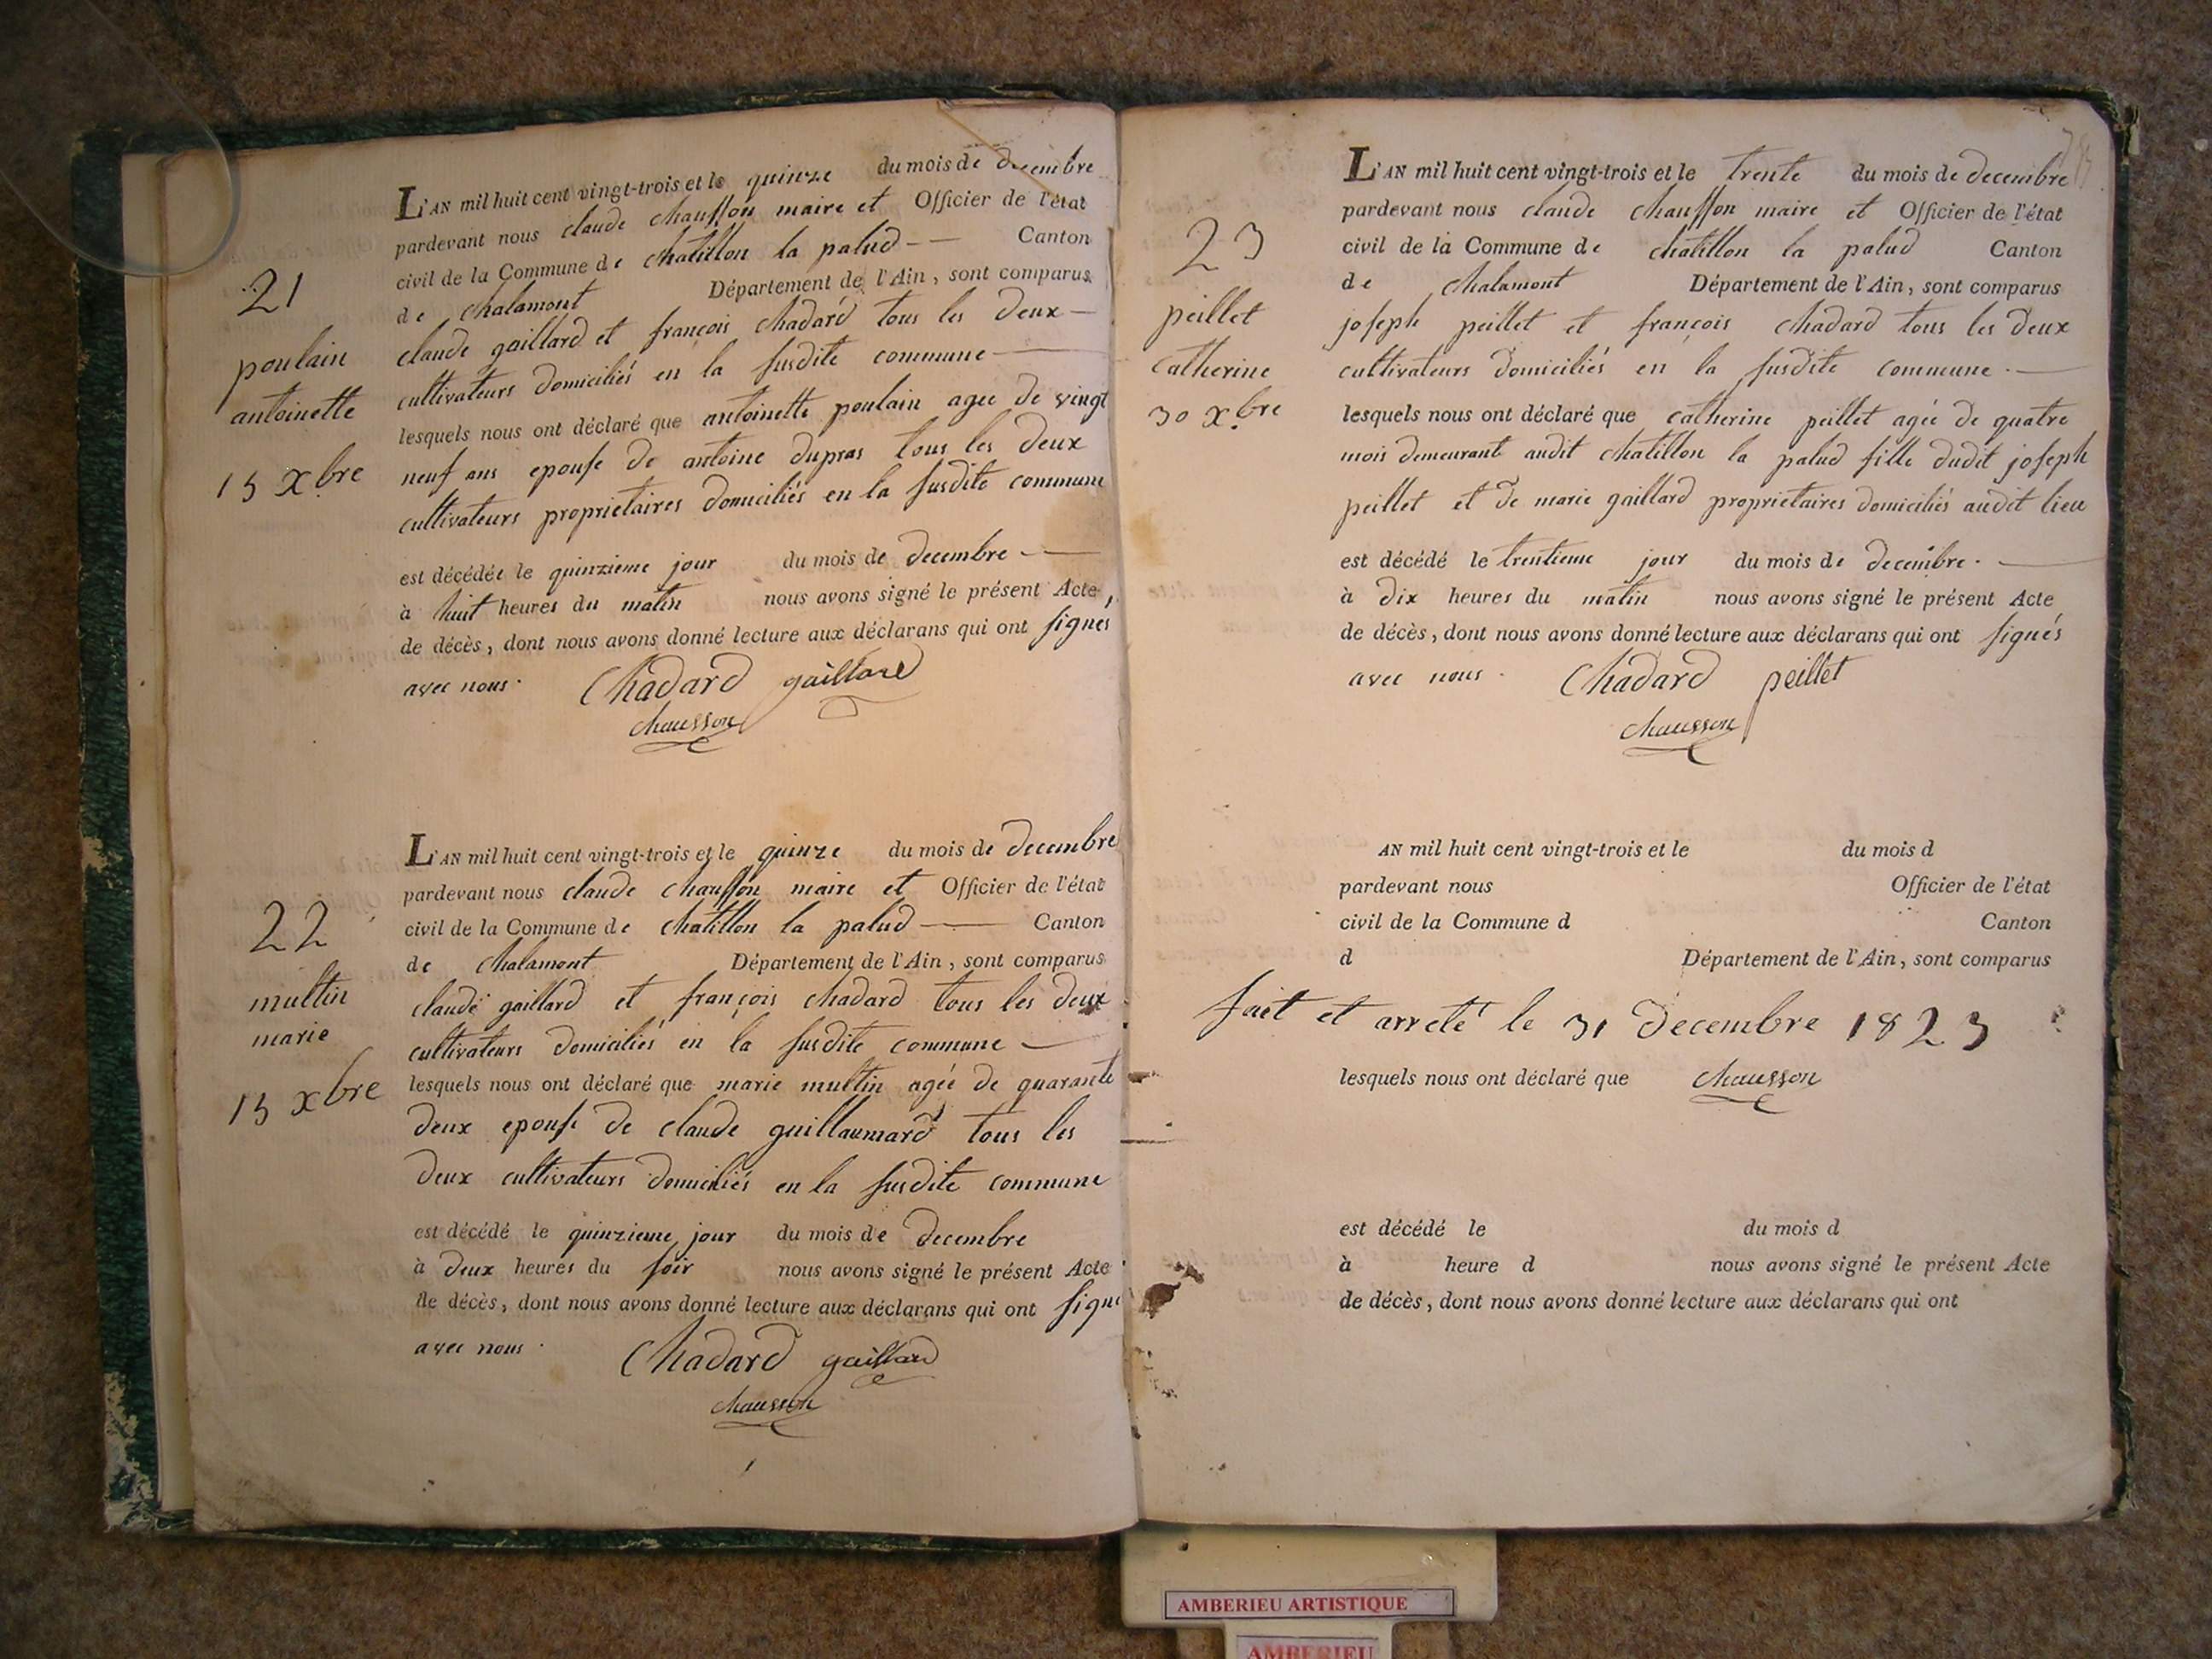 L'AN mil huit cent vingt-trois et le quinze du mois de decembre
pardevant nous claude chausson maire et Officier de l'état
civil de la Commune de chatillon la palud Canton
de chalamont Département de l'Ain, sont comparus
claude gaillard et françois chadard tous les deux
cultivateurs domiciliés en la susdite commune
lesquels nous ont déclaré que antoinette poulain agee de vingt
neuf ans epouse de antoine dupras tous les deux
cultivateurs proprietaires domiciliés en la susdite commune
est décédée le quinzieme jour du mois de decembre
à huit heures du matin nous avons signé le présent Acte,
de décès, dont nous avons donné lecture aux déclarans qui ont signés
avec nous.
Chadard gaillard
chausson
21
poulain
antoinette
15 xbre
L'AN mil huit cent vingt-trois et le quinze du mois de decembre
pardevant nous claude chausson maire et Officier de l'état
civil de la Commune de chatillon la palud Canton
de chalamont Département de l'Ain, sont comparus
claude gaillard et françois chadard tous les deux
cultivateurs domiciliés en la susdite commune
lesquels nous ont déclaré que marie multin agée de quarante
deux epouse de claude guillaumard tous les
deux cultivateurs domiciliés en la susdite commune
est décédé le quinzieme jour du mois de decembre
à deux heures du soir nous avons signé le présent Acte
de décès, dont nous avons donné lecture aux déclarans qui ont signe
avec nous.
Chadard gaillard
chausson
22
multin
marie
15 xbre
L'AN mil huit cent vingt-trois et le trente du mois de decembre
pardevant nous claude chausson maire et Officier de l'état
civil de la Commune de chatillon la palud Canton
de chalamont Département de l'Ain, sont comparus
joseph peillet et françois chadard tous les deux
cultivateurs domiciliés en la susdite commune.
lesquels nous ont déclaré que catherine peillet agée de quatre
mois demeurante audit chatillon la palud fille dudit joseph
peillet et de marie gaillard proprietaires domiciliés audit lieu
est décédé le trentieme jour du mois de decembre.
à dix heures du matin nous avons signé le présent Acte
de décès, dont nous avons donné lecture aux déclarans qui ont signés
avec nous.
Chadard peillet
chausson
23
peillet
catherine
30 xbre
AN mil huit cent vingt-trois et le du mois d
pardevant nous Officier de l'état
civil de la Commune d Canton
d Département de l'Ain, sont comparus
fait et arreté le 31 decembre 1823
lesquels nous ont déclaré que chausson
est décédé le du mois d
à heure d nous avons signé le présent Acte
de décès, dont nous avons donné lecture aux déclarans qui ont
AMBERIEU ARTISTIQUE
AMBERIEU